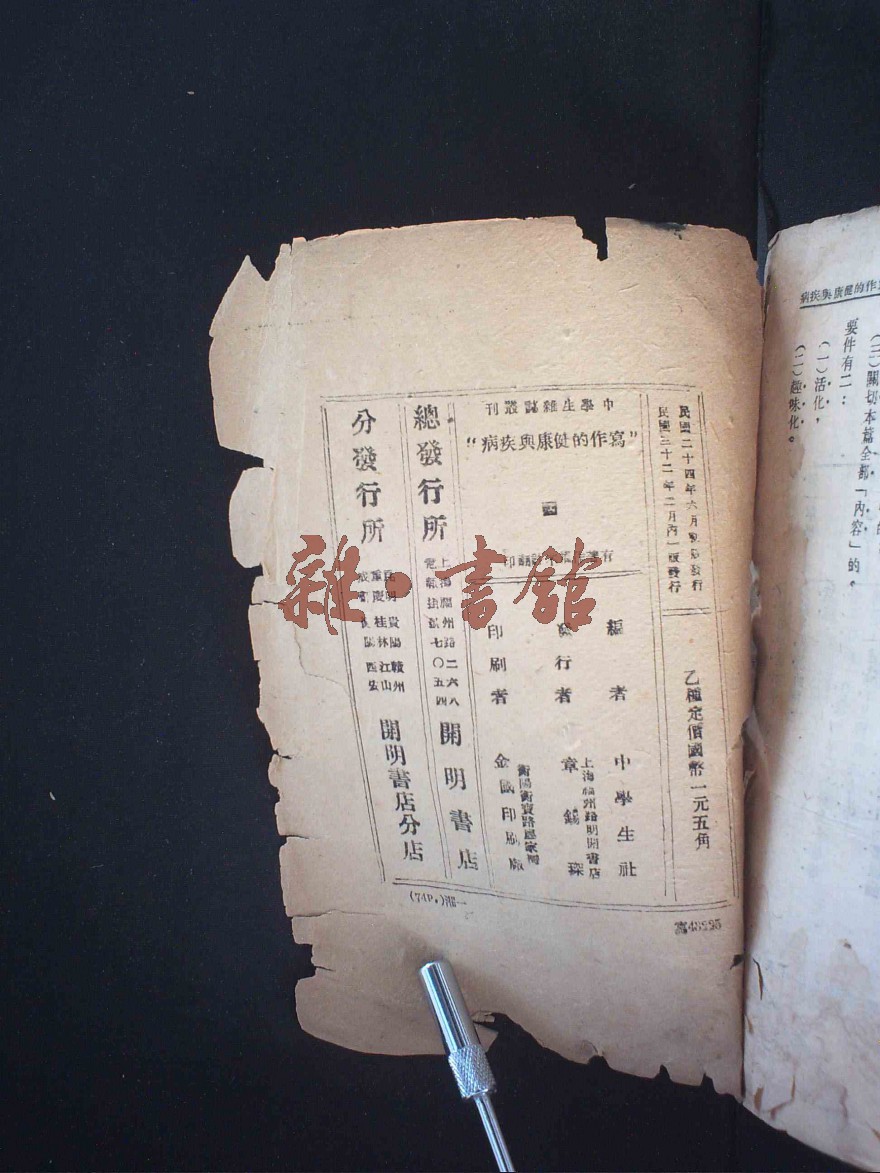 病疾與康健的作
(三)關切本篇全部「內容」的。
要件有二：
(一)活化，
(二)趣味化。
民國二十四年六月發行
民國三十二年二月內一版發行
乙種定價國幣一元五角
中學生雜誌叢刊
"寫作的健康與疾病"
有著 印
編者 中學生社
發行者 章錫琛
上海福州路明開書店
印刷者 金 印刷廠
衡陽衡寶路
總發行所 上海福州路二六八 電報掛號七〇五四 開明書店
分發行所 昆明 重慶 成 貴陽 桂林 贛州 江山 西 開明書店分店
(74P.)湘一
寫
雜·書館